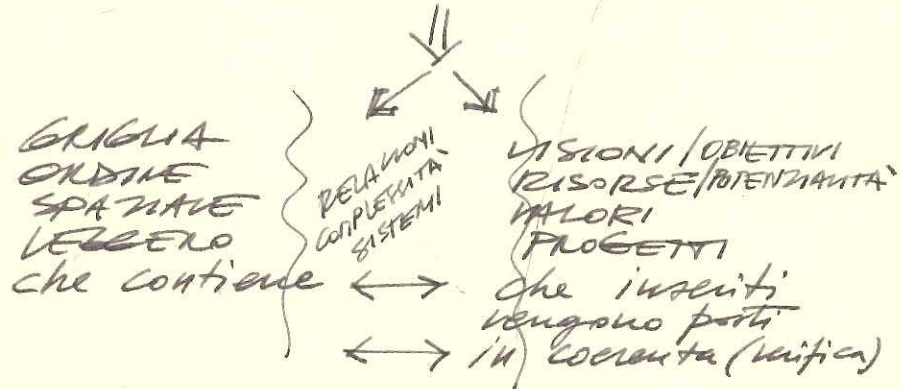 GRIGLIA
ORDINE
SPAZIALE
LEGGERO
che contiene
RELAZIONI
COMPLESSITÀ
SISTEMI
VISIONI / OBIETTIVI
RISORSE / POTENZIALITÀ
VALORI
PROGETTI
che inseriti
vengono posti
in coerenza (verifica)